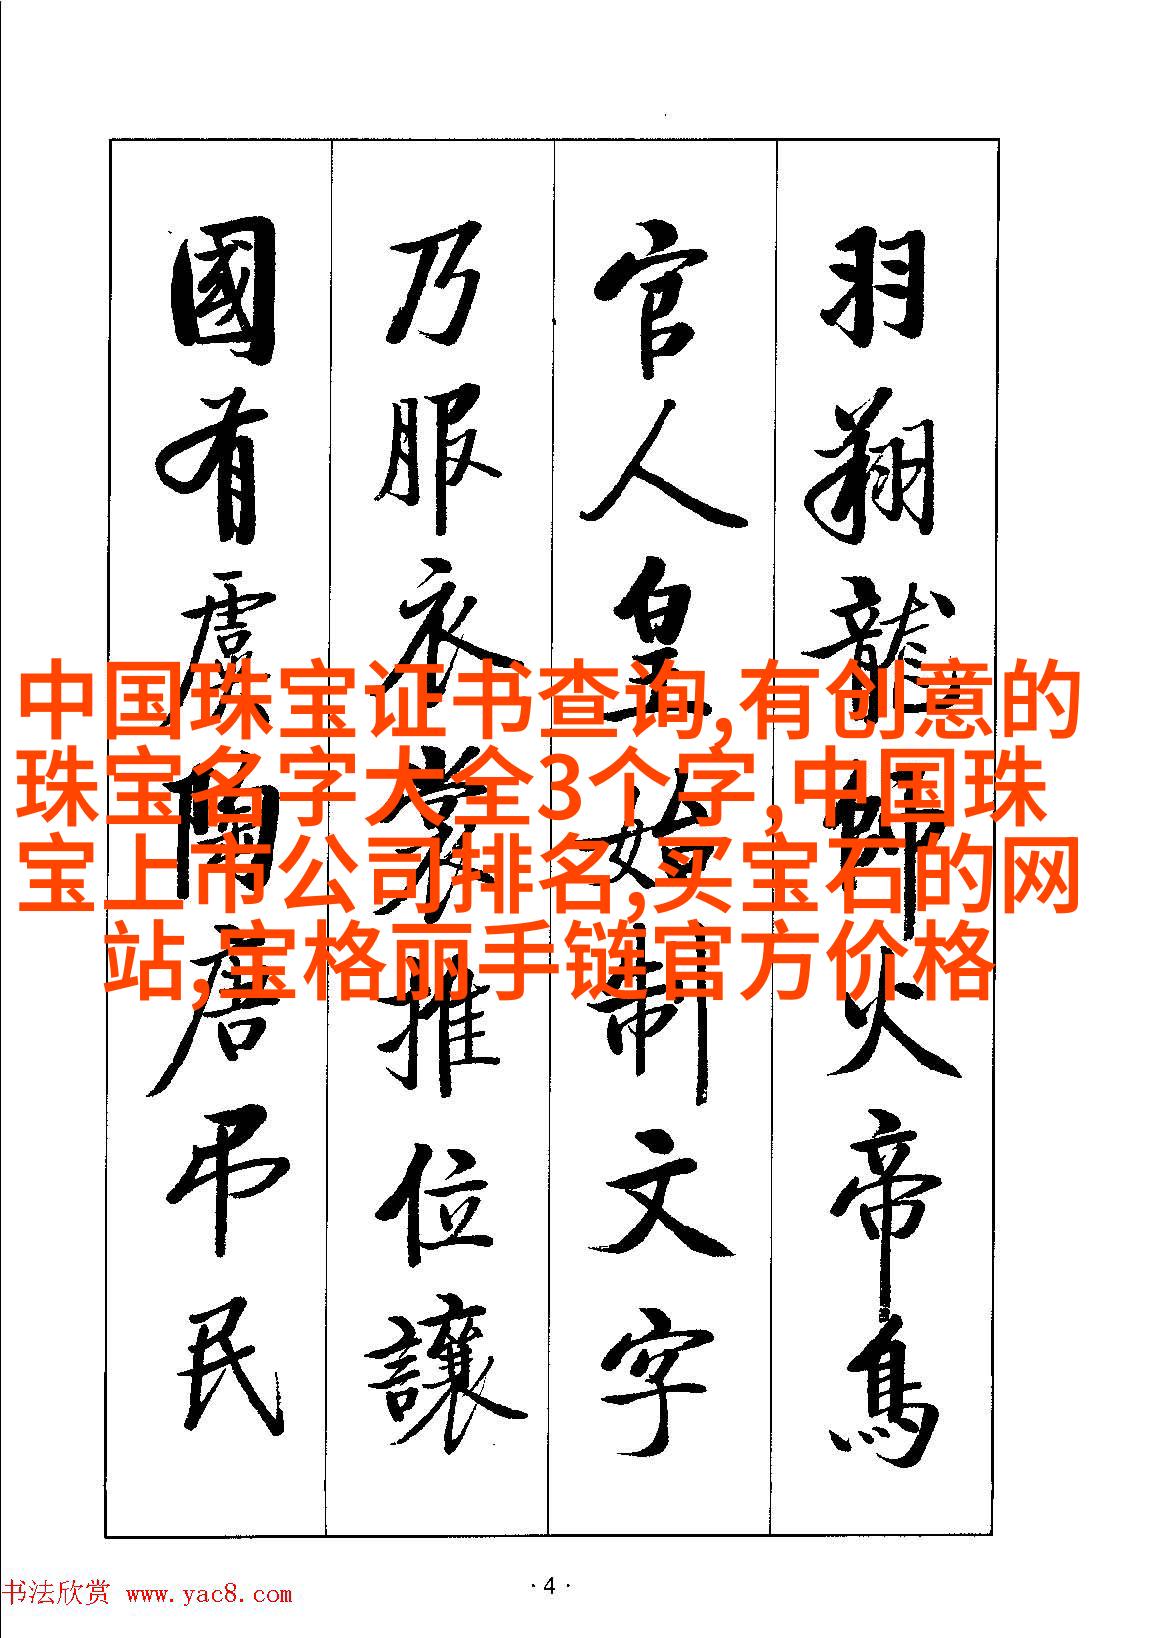 羽翔龍師火帝鳥
官人皇始制文字
乃服衣裳推位讓
國有虞陶唐弔民
中国珠宝证书查询,有创意的
珠宝名字大全3个字,中国珠
宝上市公司排名,买宝石的网
站,宝格丽手链官方价格
·4·
书法欣赏 www.yac8.com